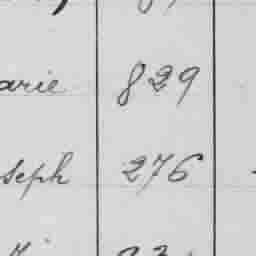 arie 829
seph 276